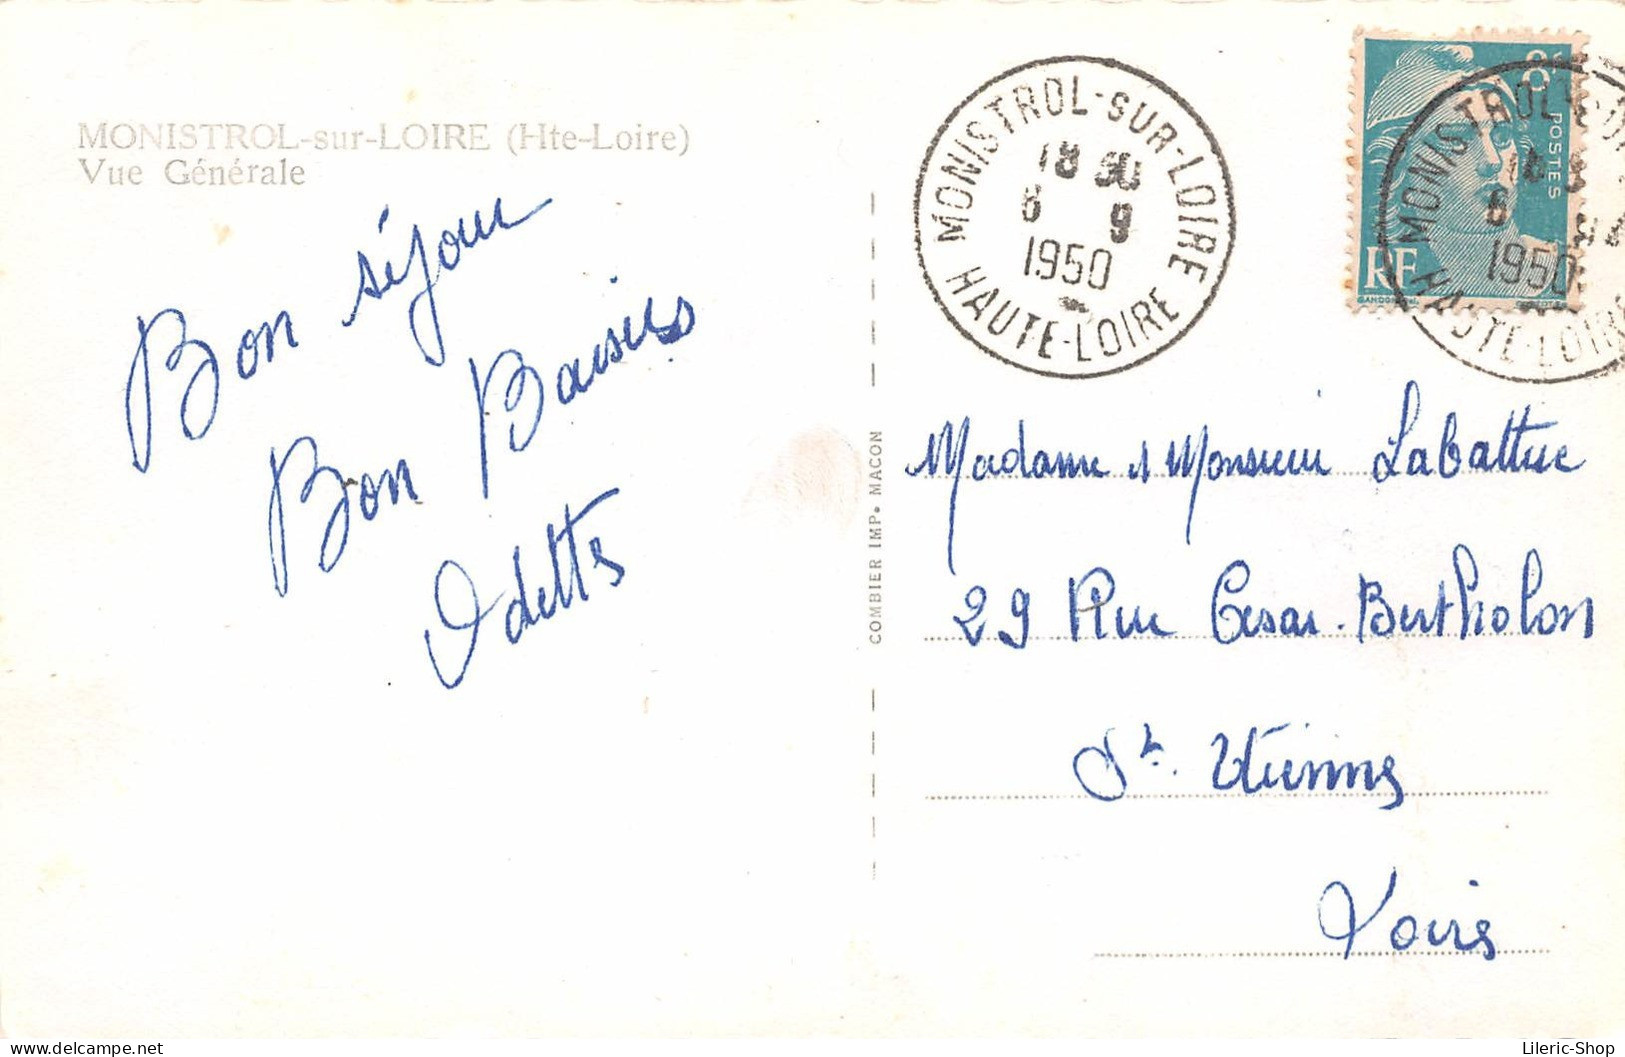 MONISTROL-sur-LOIRE (Hte-Loire)
Vue Générale
Bon séjour
Bon Baisers
Odette
COMBIER IMP. MACON
MONISTROL-SUR-LOIRE
18 30
6 9
1950
HAUTE-LOIRE
8F
POSTES
RF
MONISTROL
1950
HAUTE-LOIRE
Madame & Monsieur Labattue
29 Rue Cesar-Bertholon
St. Etienne
Loire
Lileric-Shop